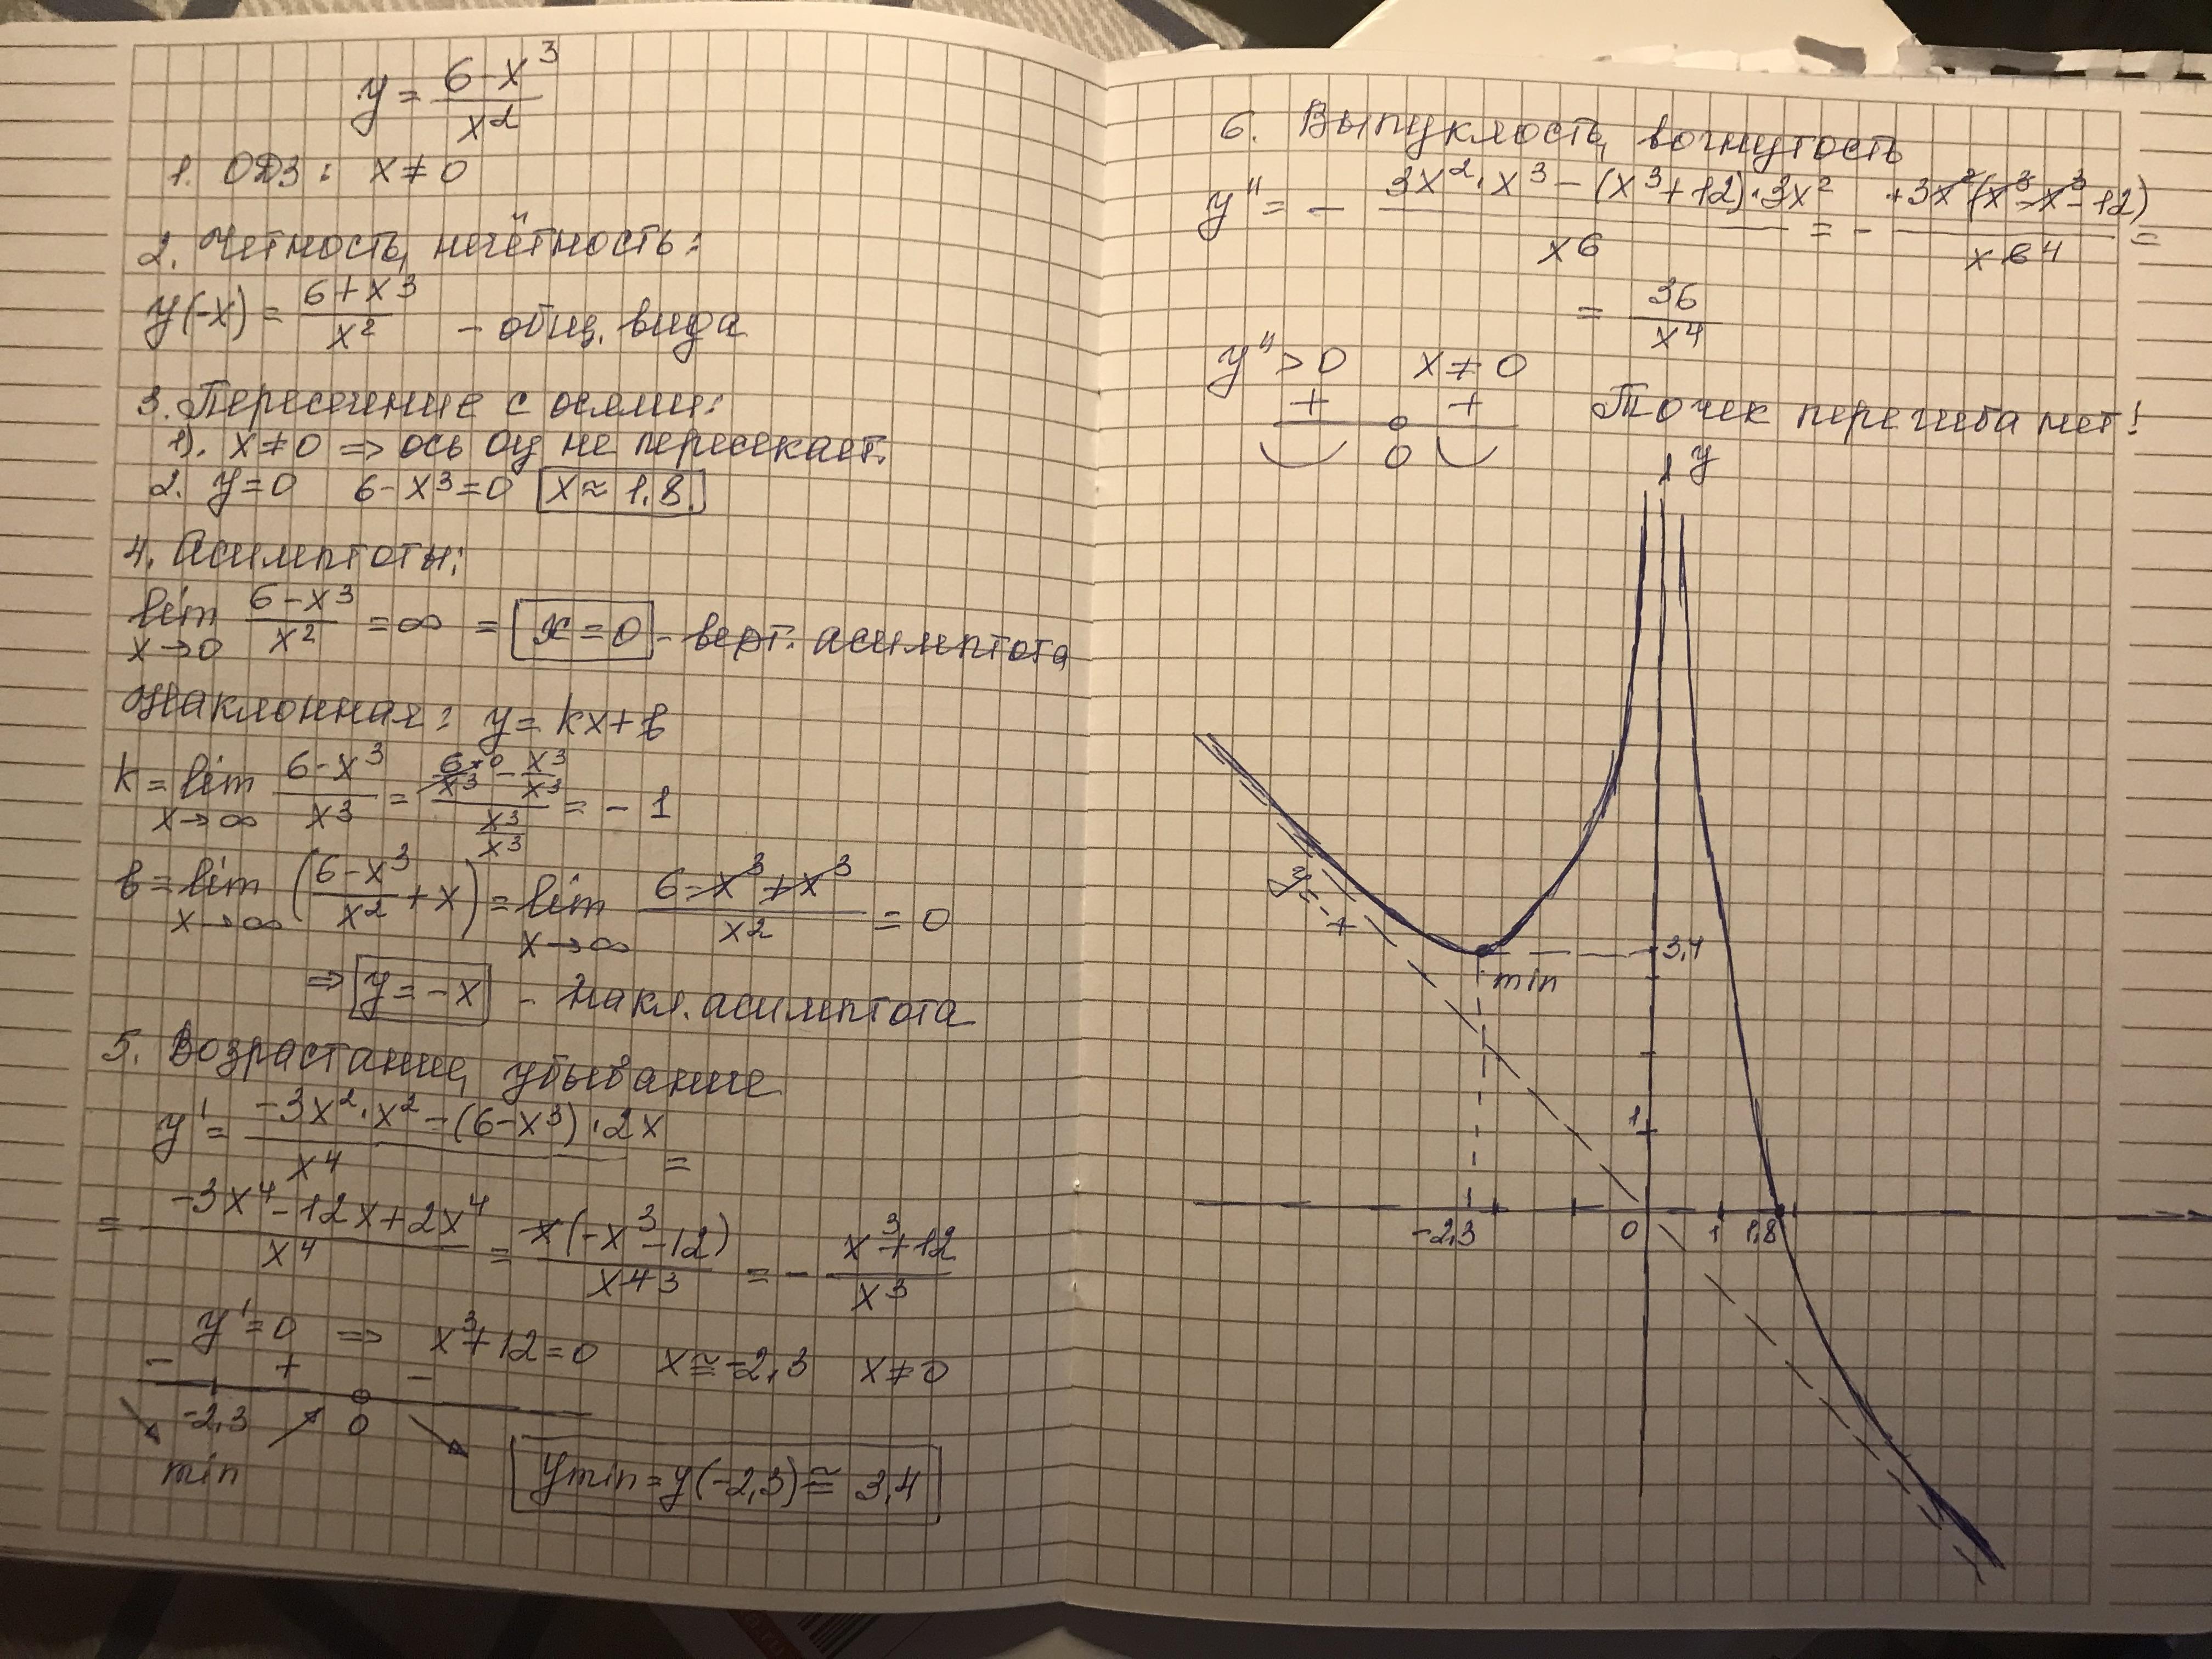 y = (6-x³)/x²
1. ОДЗ: x≠0
2. Четность, нечётность:
y(-x) = (6+x³)/x² - общ. вида
3. Пересечение с осями:
1). x≠0 ⇒ ось oy не пересекает.
2. y=0 6-x³=0 x≈1,8.
4. Асимптоты:
lim x→0 (6-x³)/x² = ∞ = x=0 - верт. асимптота
Наклонная: y=kx+b
k = lim x→∞ (6-x³)/x³ = (6/x³ →0 - x³/x³)/(x³/x³) = -1
b = lim x→∞ ((6-x³)/x² + x) = lim x→∞ (6-x³+x³)/x² = 0
⇒ y=-x - накл. асимптота
5. Возрастание, убывание
y' = (-3x²·x²-(6-x³)·2x)/x⁴ =
= (-3x⁴-12x+2x⁴)/x⁴ = x(-x³-12)/x⁴ ³ = - (x³+12)/x³
y'=0 ⇒ x³+12=0 x≅-2,3 x≠0
- + -
-2,3 0
min
ymin = y(-2,3) ≅ 3,4
6. Выпуклость, вогнутость
y'' = - (3x²·x³-(x³+12)·3x²)/x6 = - (+3x²(x³-x³-12))/x6 4 =
= 36/x⁴
y''>0 x≠0
+ +
0
Точек перегиба нет!
y
y=-x
3,4
min
1
-2,3 0 1 1,8